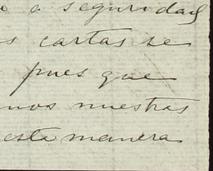 o a seguridad
s cartas se
pues que
nos nuestras
esta manera